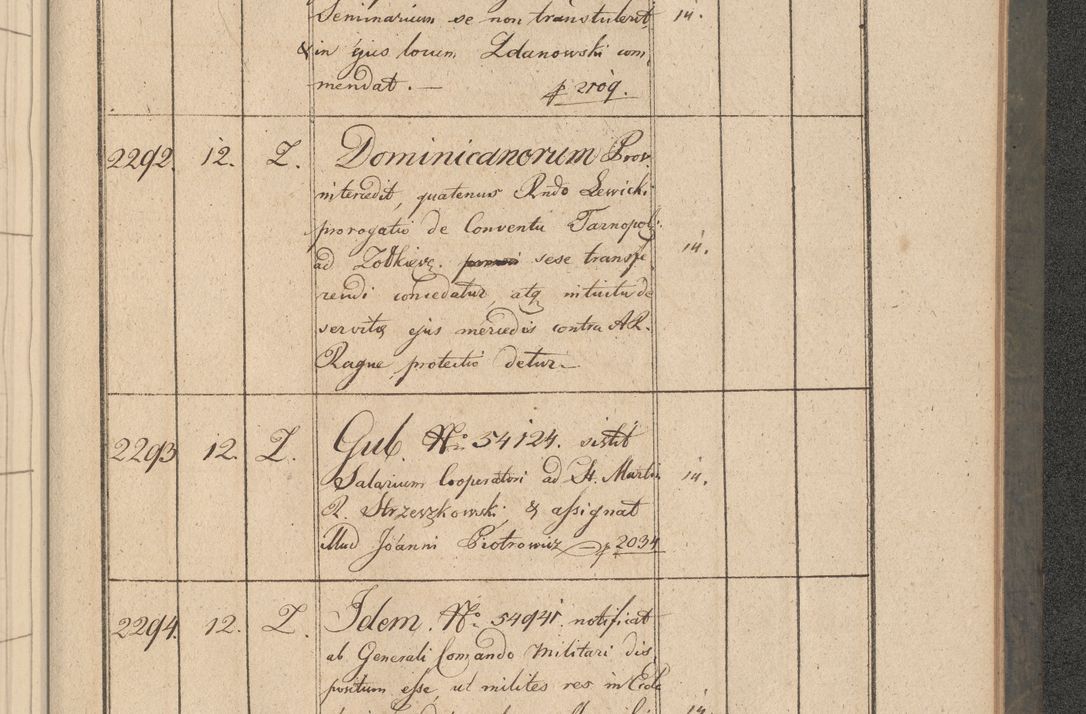 Seminarium se non transtulerit, 14.
& in ejus locum Zdanowski com
mendat. — p 2109.
2292. 12. Z. Dominicanorum Prov.
intercedit, quatenus Rndo Lewicki
prorogatio de Conventu Tarnopol.
ad Zołkiew. sese transfe 14.
rendi concedatur, atq intuitu de
servitæ ejus mercedis contra AR.
Rague protectio detur.—
2293 12. Z. Gub. No. 54124. sistit
Salarium Cooperatori ad St. Martin 14.
R. Strzeszkowski, & assignat
illud Joanni Piotrowicz — p 2034
2294. 12. Z. Idem. No. 54941. notificat
ab Generali Comando Militari dis
positum esse, ut milites res in Eccle
14.